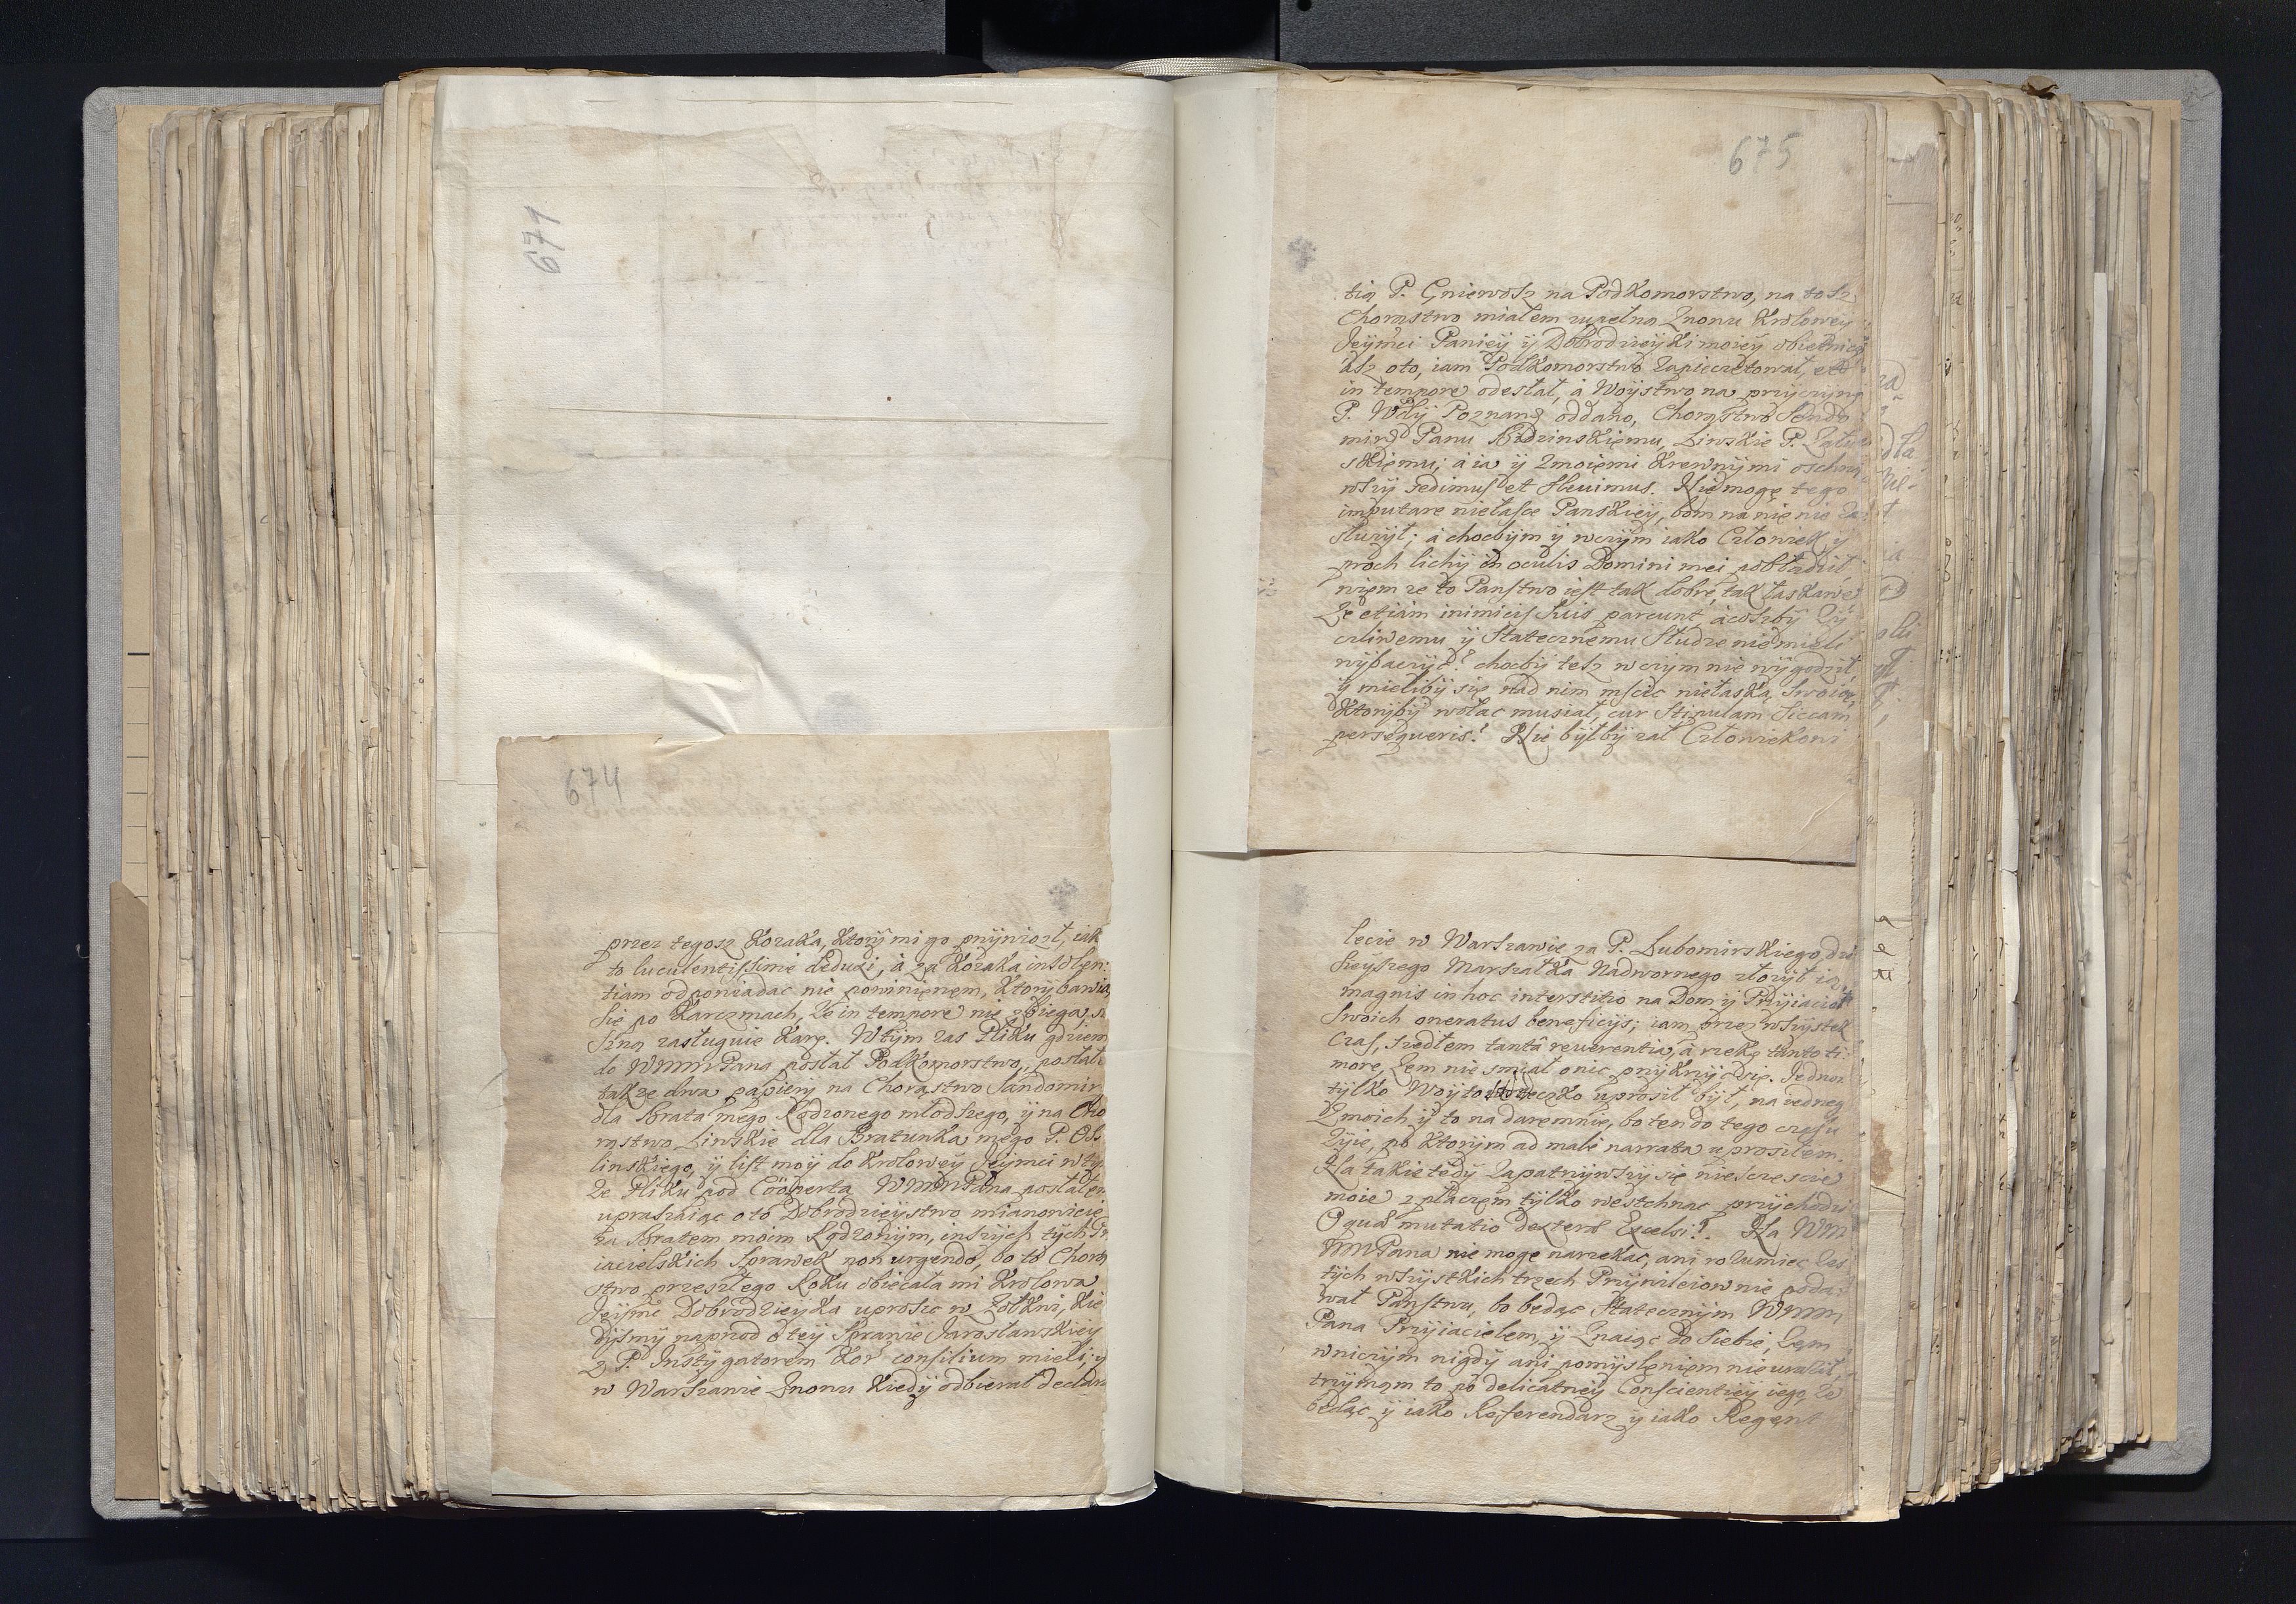 671
674
przez tegosz Kozaka, Ktorÿ mi go prÿniozł, iak
to luculentissime deduxi, á za Kozaka insolen:
tiam odpowiadac nie powinienem, Ktory bawia
się po Karczmach, Ze in tempore nie zbiega, 
szną zasługuie Karę. W tÿm zas Pliku gdziem
do WMMPana posłał Podkomorstwo, posłał
takze dwa papierÿ na Chorąstwo Sandomir
dla Brata mego Rodzonego młodszego, ÿ na Cho
rąstwo Liwskie dla Bratunka mego P. Oss
linskiego, ÿ list moÿ do Krolowey Jeÿmci w tÿ
Ze Pliku pod Cooperta WMMPana posłałem
upraszaiąc o to Dobrodzieÿstwo mianowicie
za Bratem moim Rodzonÿm, inszÿch tÿch Pr
iacielskich Sprawek non urgendo, bo to Chorą
stwo przeszłego Roku obiecała mi Krolowa
Jeÿmc Dobrodzieÿka uprosic w Zołkwi, Kie
dÿsmÿ naprzod o teÿ Sprawie Jarosławskieÿ
z P. Instÿgatorem Kor consilium mieli; ÿ
w Warszawie Znowu Kiedÿ odbierał declara
675
tią P. Gniewosz na Podkomorstwo, na tosz
Chorąstwo miałem zupełną Znowu Krolowey
Jeÿmci Panieÿ ÿ Dobrodzieÿki moieÿ obietnicę
asz oto, iam Podkomorstwo Zapieczętował, et
in tempore odesłał, á Woÿstwo na przÿczÿnę
P. Wdÿ Poznang oddano, Chorąstwo Sendo
mirs Panu Bidzinskiemu, Liwskie P. Zału
skiemu; á ia ÿ Zmoiemi Krewnÿmi oschną
wszÿ sedimus et flevimus. Nie mogę tego
imputare niełasce Panskieÿ, bom na nię nie za
służÿł; á chocbÿm ÿ w czÿm iako Człowiek ÿ
proch lichÿ in oculis Domini mei pobładził
wiem ze to Panstwo iest tak dobre, tak łaskawe
Ze etiam inimicis suis parcunt, á coszbÿ Zÿ
czliwemu ÿ Statecznemu Słudze nie mieli
wÿbaczÿc? chocbÿ tesz w czÿm nie wÿgodził
ÿ mielibÿ się nad nim mscic niełaską Swoią,
Ktorÿbÿ wołac musiał, cur stipulam siccam
persequeris? Nie bÿłbÿ zal Człowiekowi
lecie w Warszawie za P. Lubomirskiego, dzi
sieÿszego Marszałka Nadwornego złozÿł ią,
magnis in hoc interstitio na Dom ÿ Prÿiacioł
Swoich oneratus beneficÿs; iam przez wszÿstek
Czas, szedłem tantâ reverentia, á rzekę tanto ti:
more, Zem nie smiał o nic prÿkrzÿc się. Jedno
tÿlko Woÿto uprosił bÿł, na iedneg
Zmoich ÿ to na daremnie, bo ten do tego czasu
Zÿie, po Ktorÿm ad male narrata uprosiłem.
Na takie tedÿ Zapatrÿwszÿ się nieszczęscie
moie z płaczem tÿlko westchnąc przÿchodzi
O quae mutatio dexterae Excelsi!. Na WM
WMPana nie mogę narzekac, ani rozumiec Zas
tÿch wszÿstkich trzech Prÿwileiow nie poda:
wał Panstwu, bo będąc Statecznÿm WMM
Pana Prÿiacielem, ÿ Znaiąc do siebie, Zem
w niczÿm nigdÿ ani pomÿsleniem nie uraził,
trzÿmam to po delicatneÿ Conscientieÿ iego, Ze
będąc ÿ iako Referendarz ÿ iako Regent